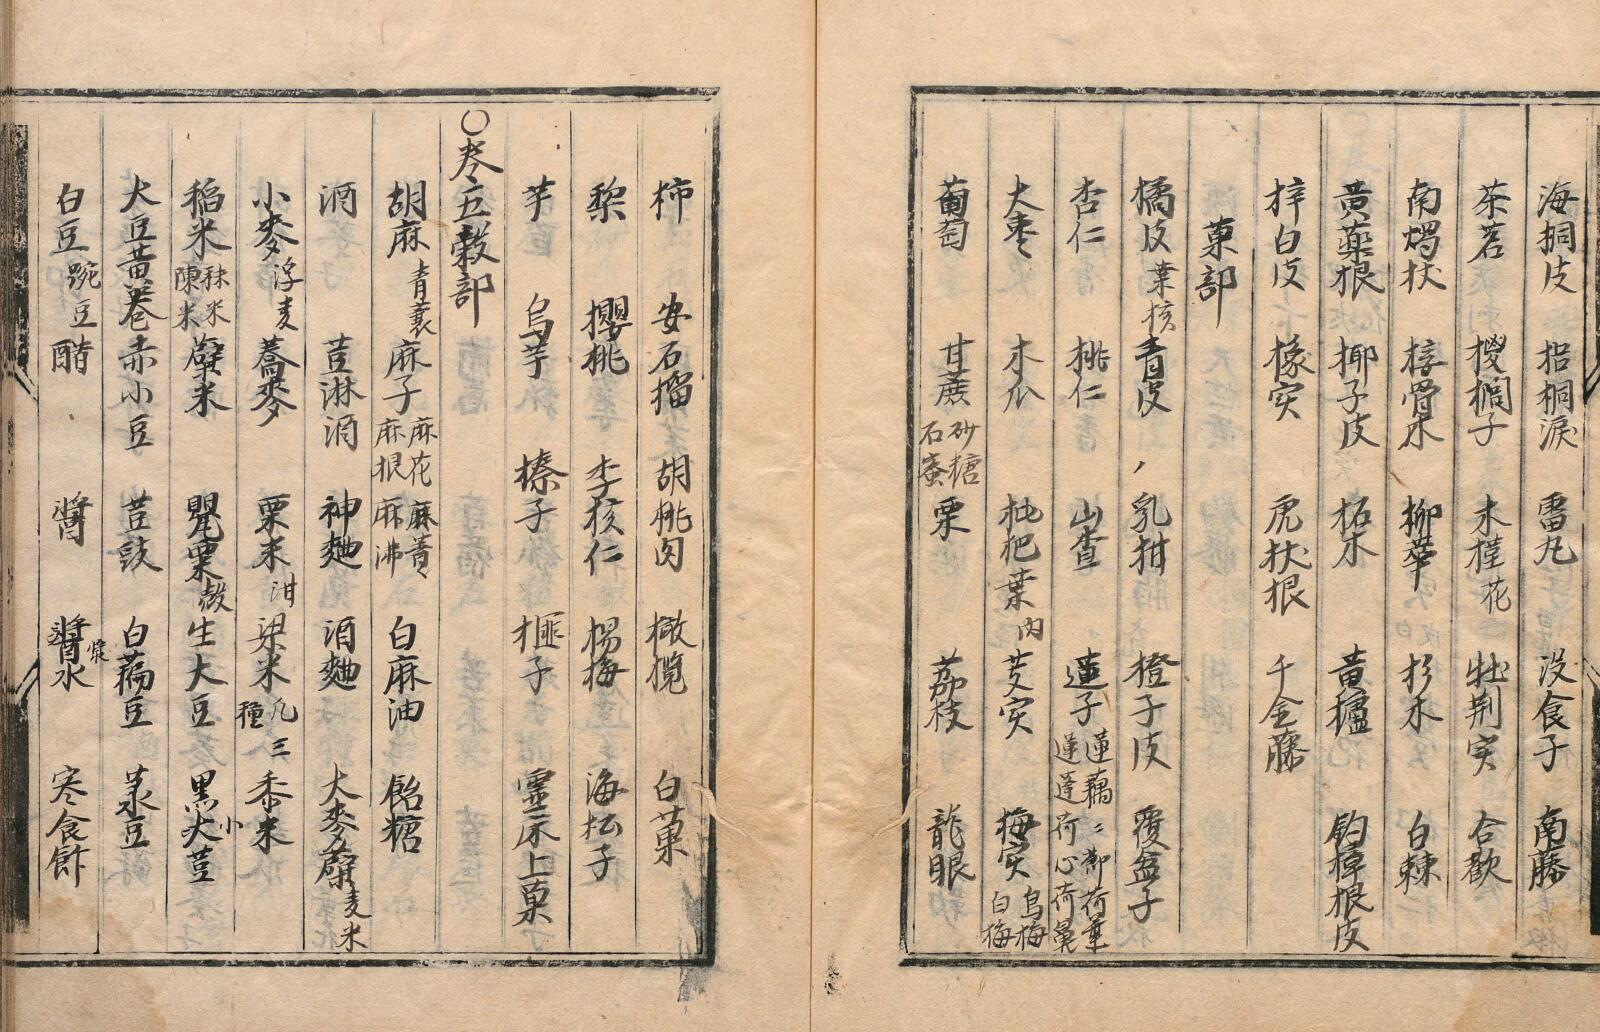 海桐皮 梧桐淚 雷丸 沒食子 南藤
茶茗 椶櫚子 木槿花 牡荊实 合歡
南燭杕 椁骨木 柳華 杉木 白棘
黃藥根 椰子皮 柘木 黃櫨 釣樟根皮
梓白皮 橡实 虎杖根 千金藤
菓部
橘皮 葉核 青皮 乳柑 橙子皮 覆盆子
杏仁 桃仁 山査 蓮子
大棗 木瓜 枇杷葉 肉 芰实 梅实 烏梅 白梅
葡萄 甘蔗 砂糖 石蜜 栗 荔枝 龍眼
柿 安石榴 胡桃肉 橄欖 白菓
梨 櫻桃 李核仁 楊梅 海松子
芋 烏芋 榛子 榧子 靈床上菓
○卷五 穀部
胡麻 青蘘 麻子 麻花 麻根 麻蕡 麻沸 白麻油 飴糖
酒 荳淋酒 神麯 酒麯 大麥蘖 麦米
小麥 浮麦 蕎麥 粟米 泔 粱米 凡三種 黍米
稻米 秫米 陳米 糵米 罌粟殼 生大豆 黑小大荳
大豆黃卷 赤小豆 荳豉 白藊豆 菉豆
白豆 豌豆 醋 醬 醬水 寒食飰